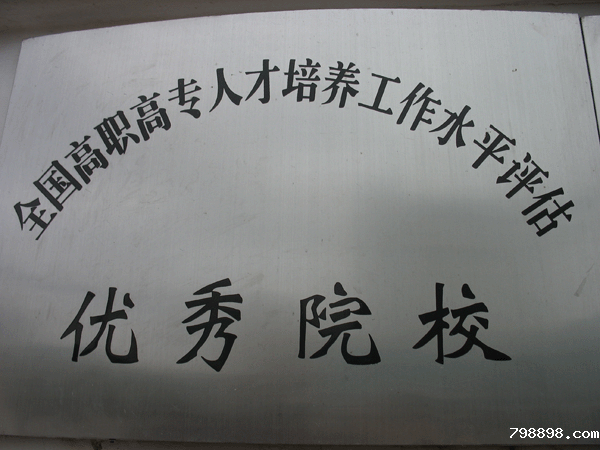 全国高职高专人才培养工作水平评估
优秀院校
798898.com